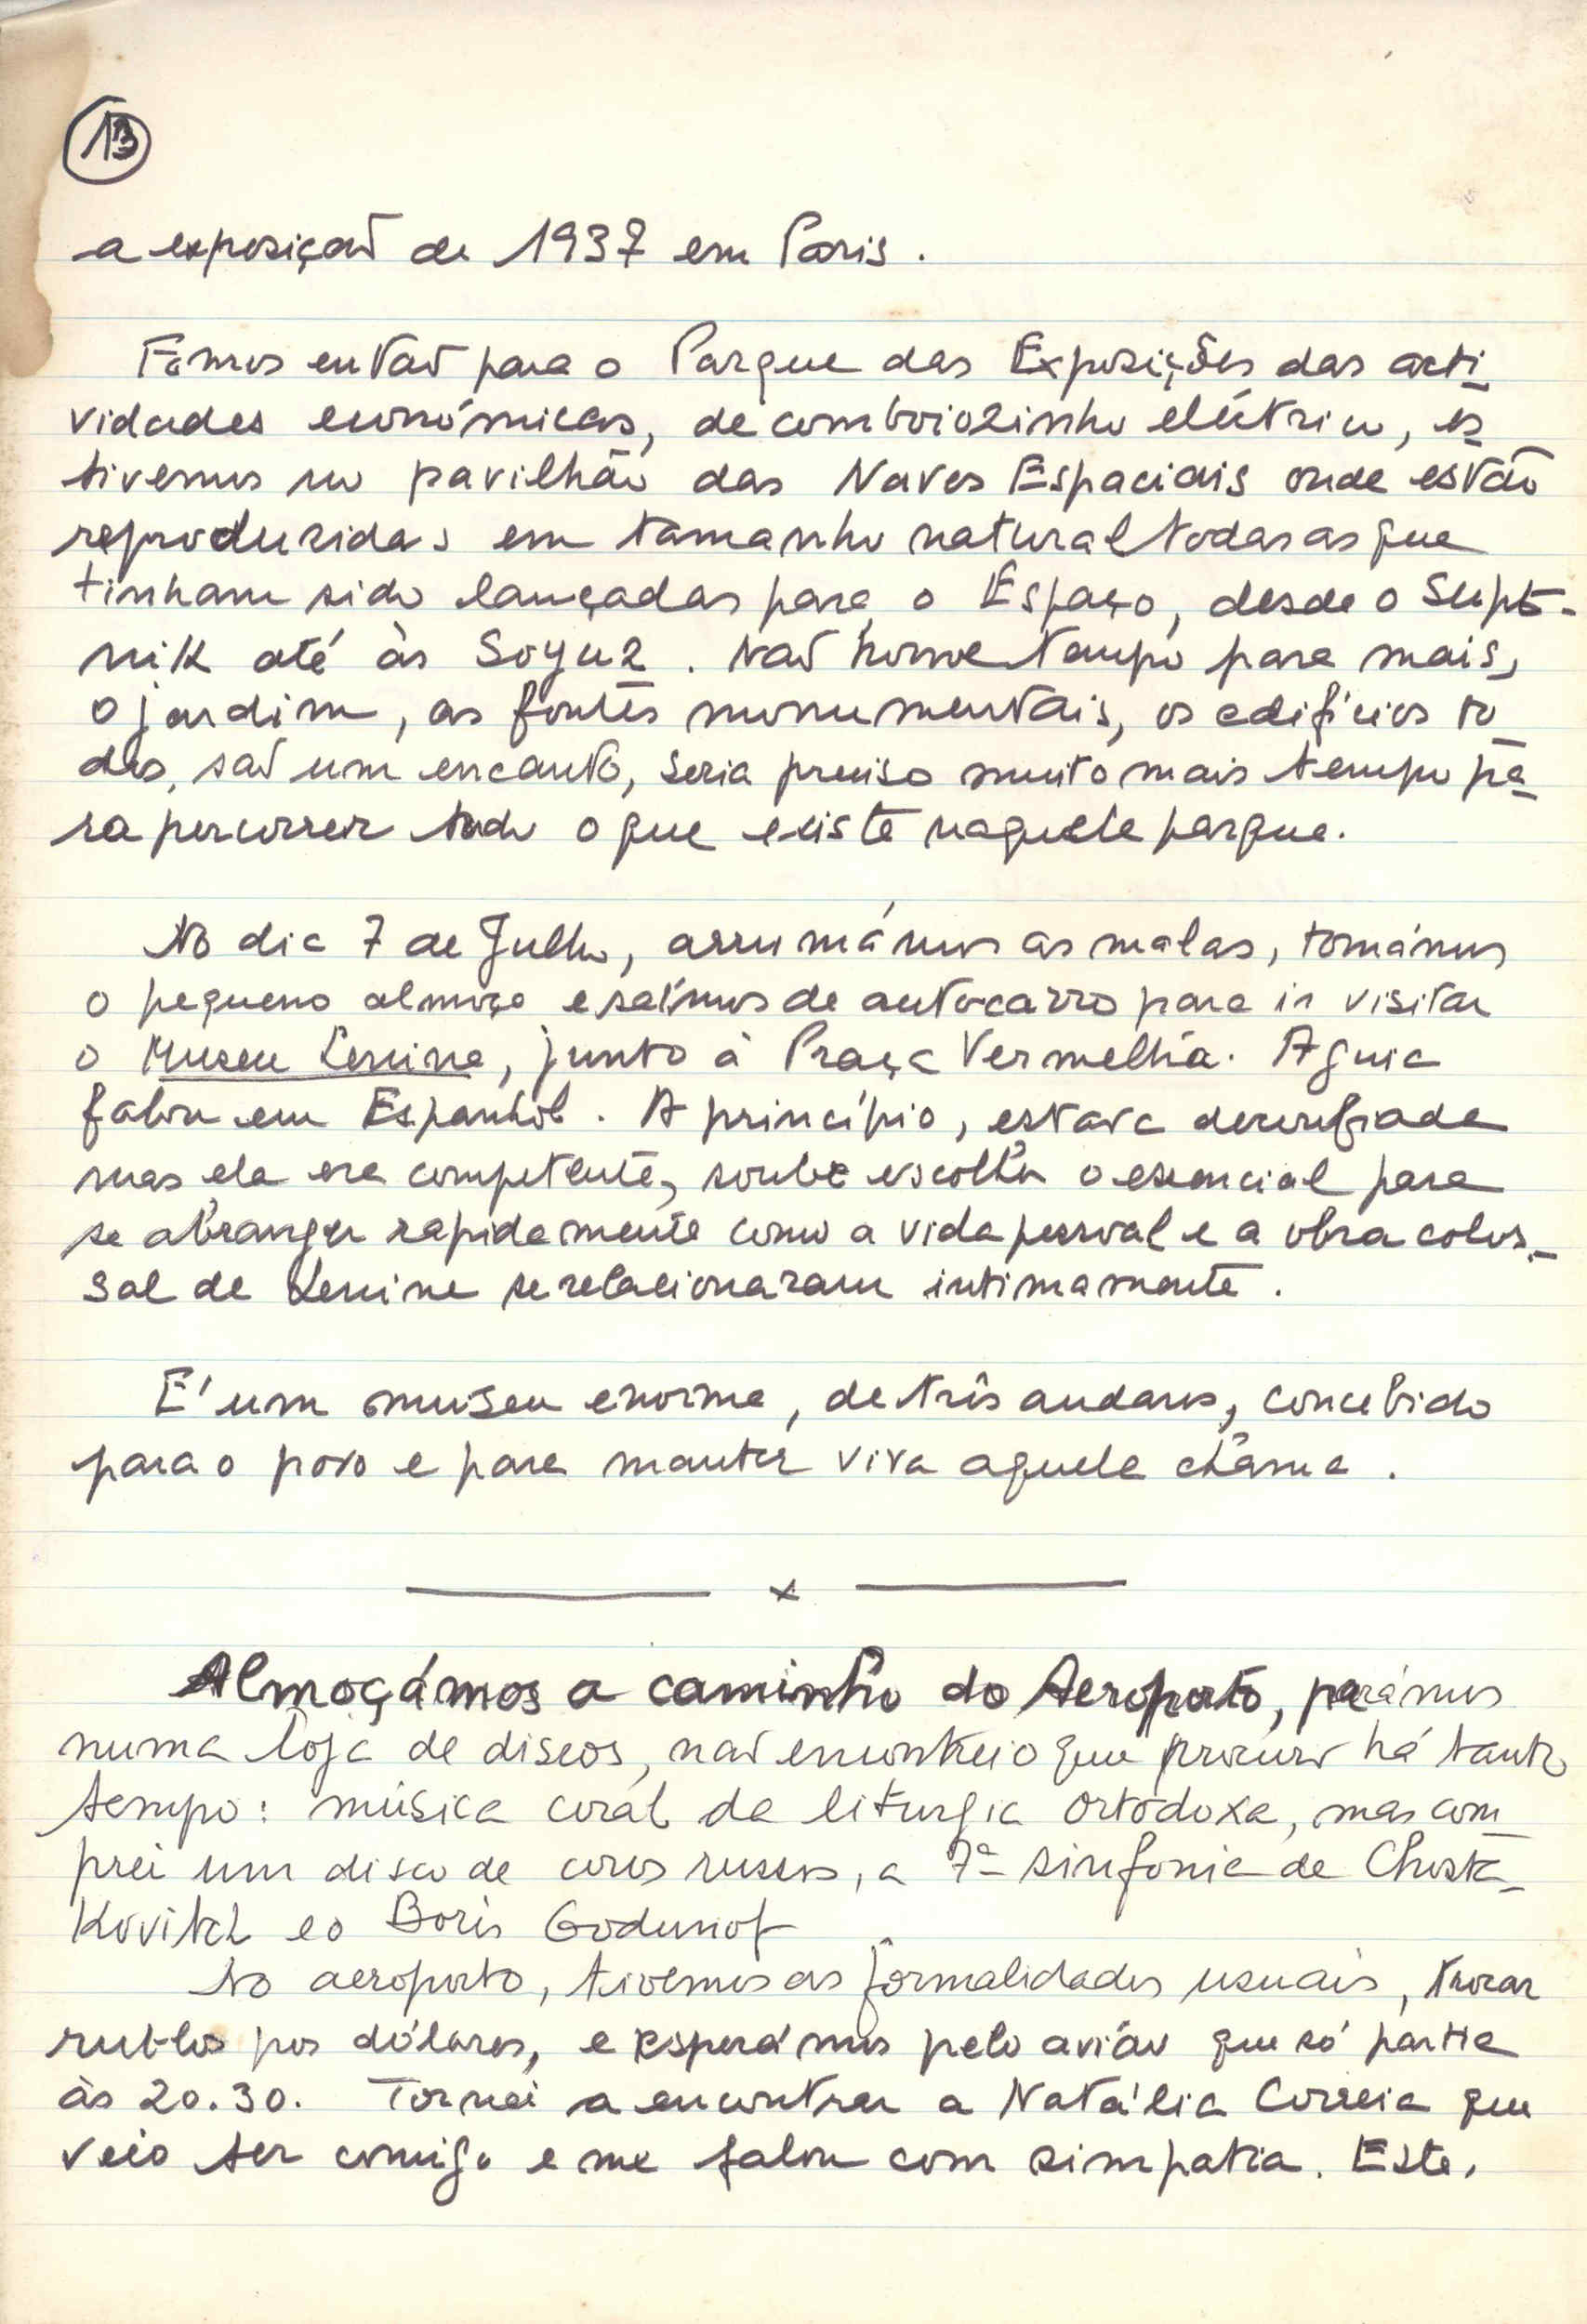 13
a exposição de 1937 em Paris.
Fomos então para o Parque das Exposições das acti
vidades económicas, de comboiozinho eléctrico, es
tivemos no pavilhão das Naves Espaciais onde estão
reproduzidas em tamanho natural todas as que
tinham sido lançadas para o Espaço, desde o Supt-
nik até às Soyuz. Não houve tempo para mais,
o jardim, as fontes monumentais, os edifícios to
dos, são um encanto, seria preciso muito mais tempo pa
ra percorrer tudo o que existe naquele parque.
No dia 7 de Julho, arrumámos as malas, tomámos
o pequeno almoço e saímos de autocarro para ir visitar
o Museu Lenine, junto à Praça Vermelha. A guia
falou em Espanhol. A princípio, estava desconfiada
mas ela era competente, soube escolher o esencial para
se abranger rapidamente como a vida pessoal e a obra colos-
sal de Lenine se relacionaram intimamente.
É um museu enorme, de três andares, concebido
para o povo e para manter viva aquela chama.
x
Almoçámos a caminho do Aeroporto, parámos
numa loja de discos, não encontrei o que procuro há tanto
tempo: música coral da liturgia ortodoxa, mas com
prei um disco de coros russos, a 7ª sinfonia de Chosta-
Kovitch e o Boris Godunof
No aeroporto, tivemos as formalidades usuais, trocar
rublos por dólares, e esperámos pelo avião que só partia
às 20.30. Tornei a encontrar a Natália Correia que
veio ter comigo e me falou com simpatia. Este,